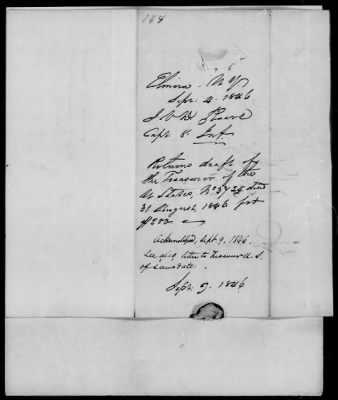 188
Elmira N Y
Sept. 4. 1846
I V D Reeve
Capt 8. Inf.
Returns draft of
the Treasurer of the
U States, No 3738 dated
31 August 1846 for
$200.
Acknowledged, Sept 9, 1846.
See also letter to Treasurer U. S.
of same date.
Sept 9. 1846